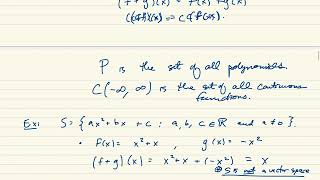 (f+g)(x) = f(x) + g(x)
(cf)(x) = c f(x).
P is the set of all polynomials.
C(-∞, ∞) is the set of all continuous
functions.
Ex: S = { ax² + bx + c : a, b, c ∈ ℝ and a ≠ 0 }.
• f(x) = x² + x , g(x) = -x²
(f+g)(x) = x² + x + (-x²) = x
S is not a vector space